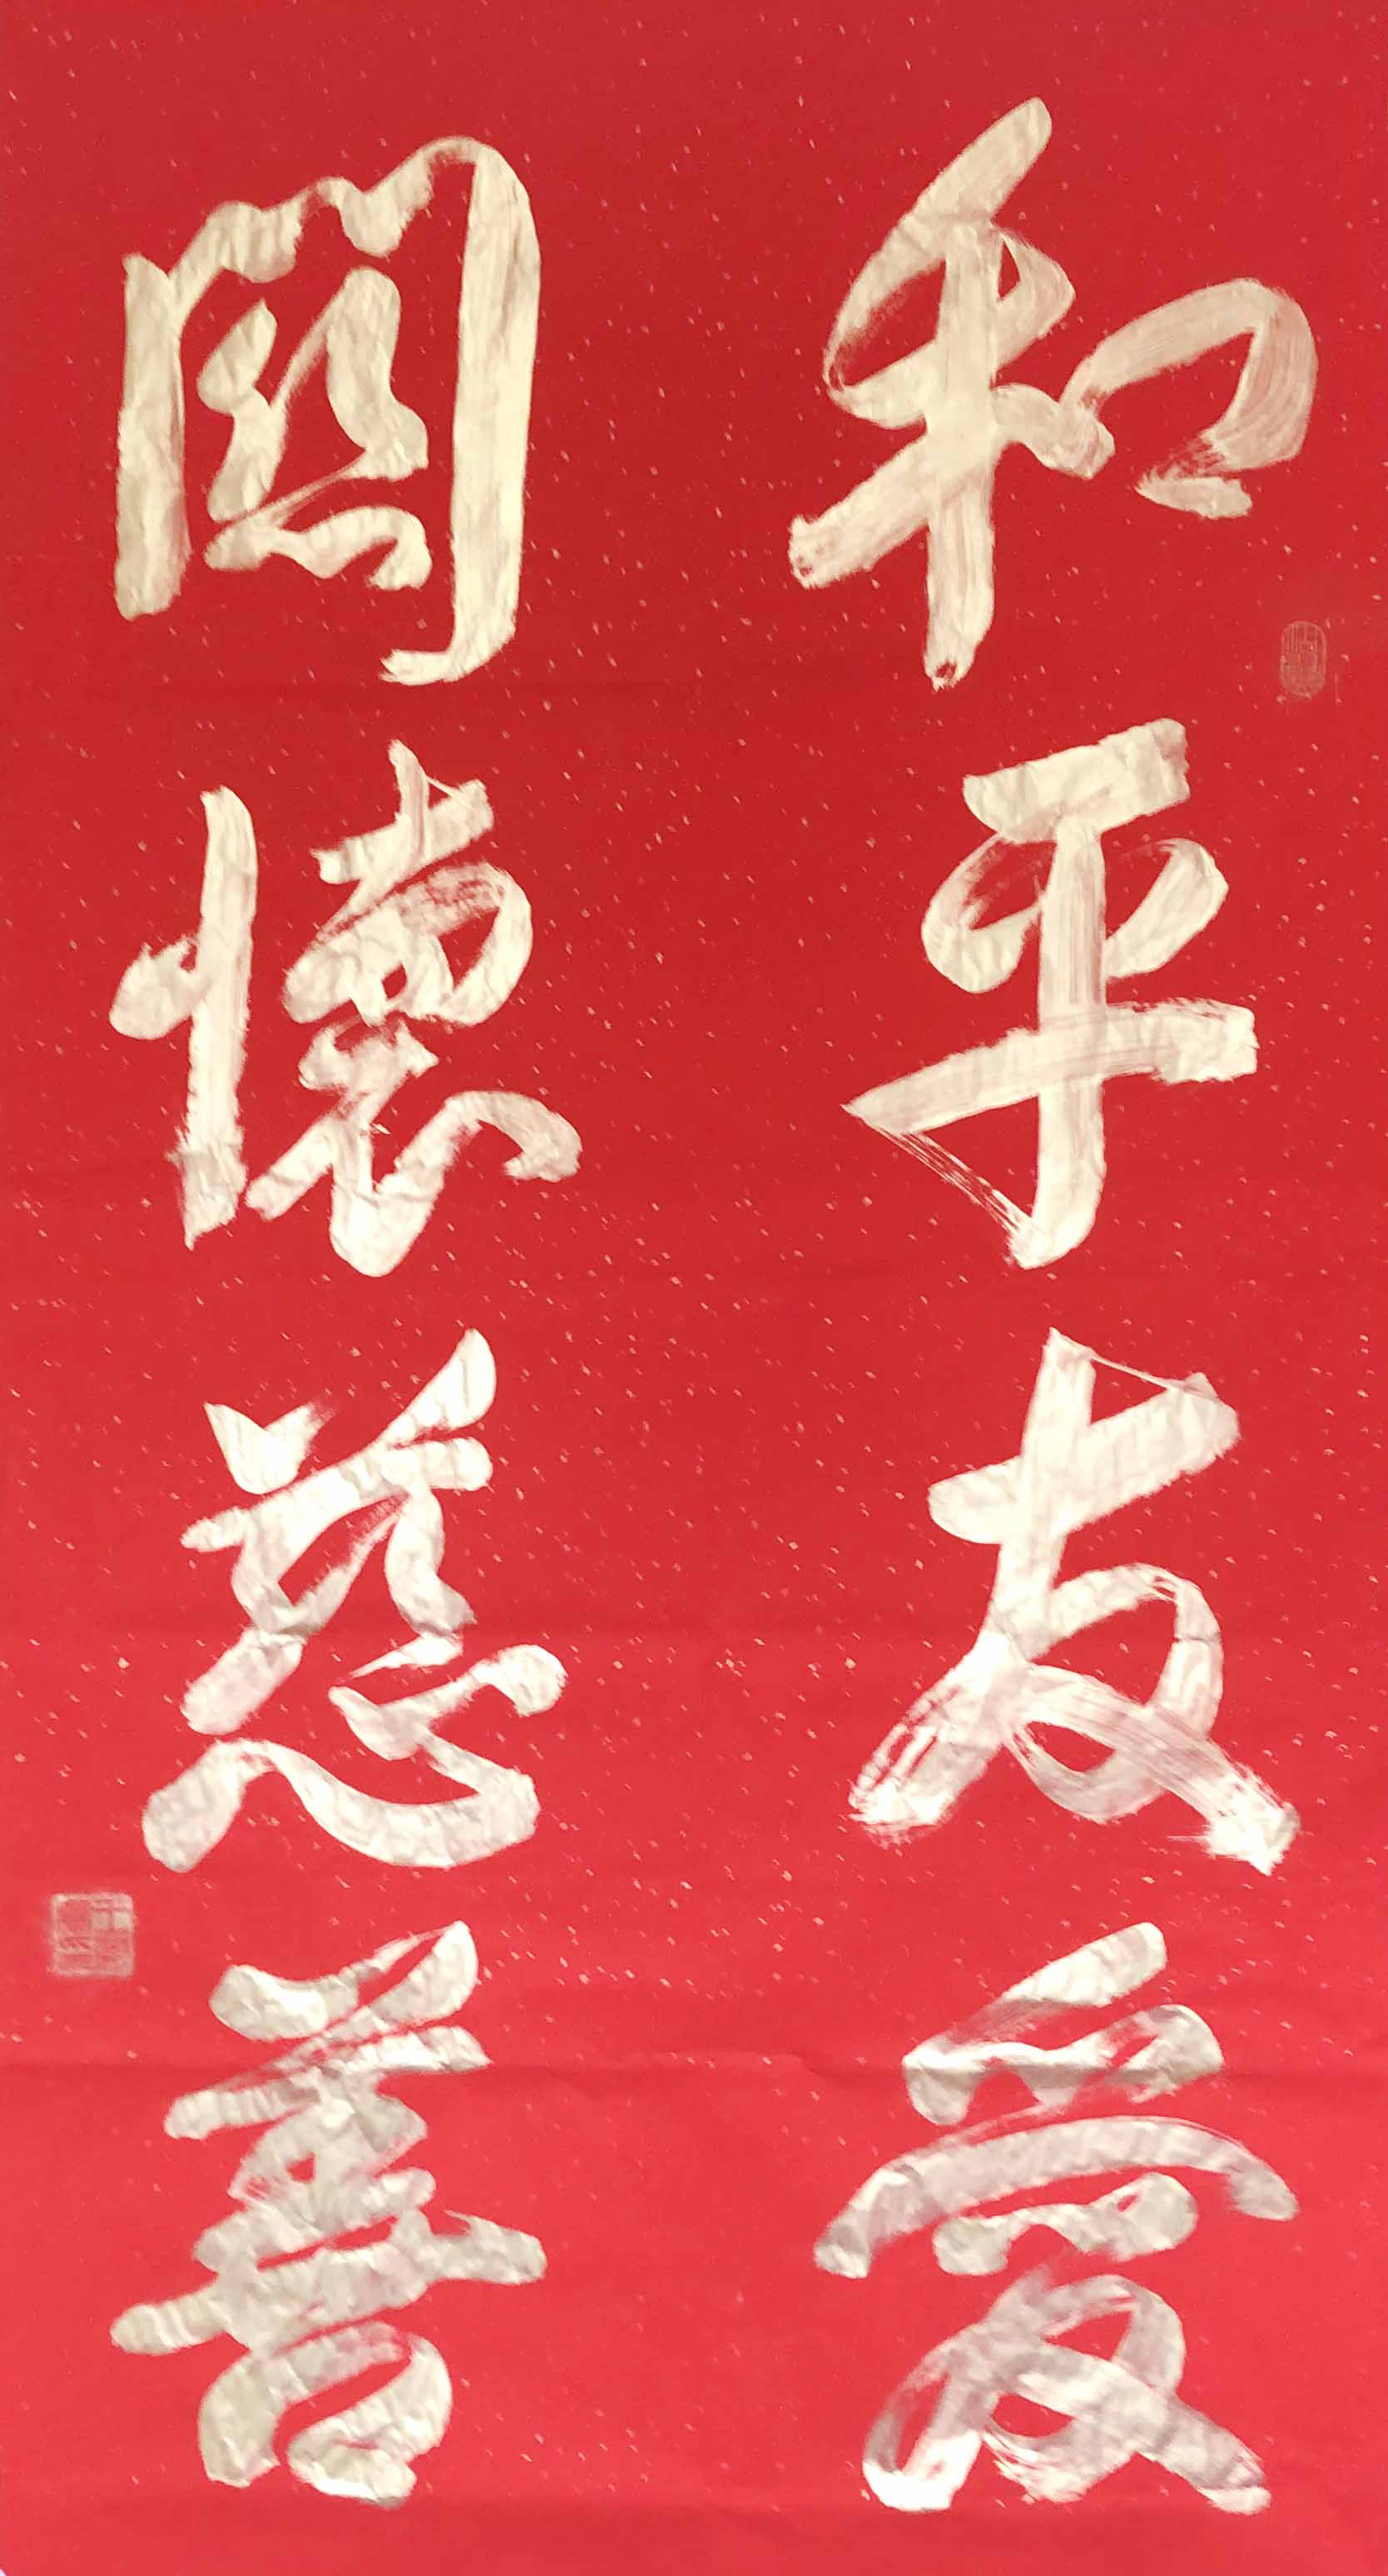 和平友愛
關懷慈善